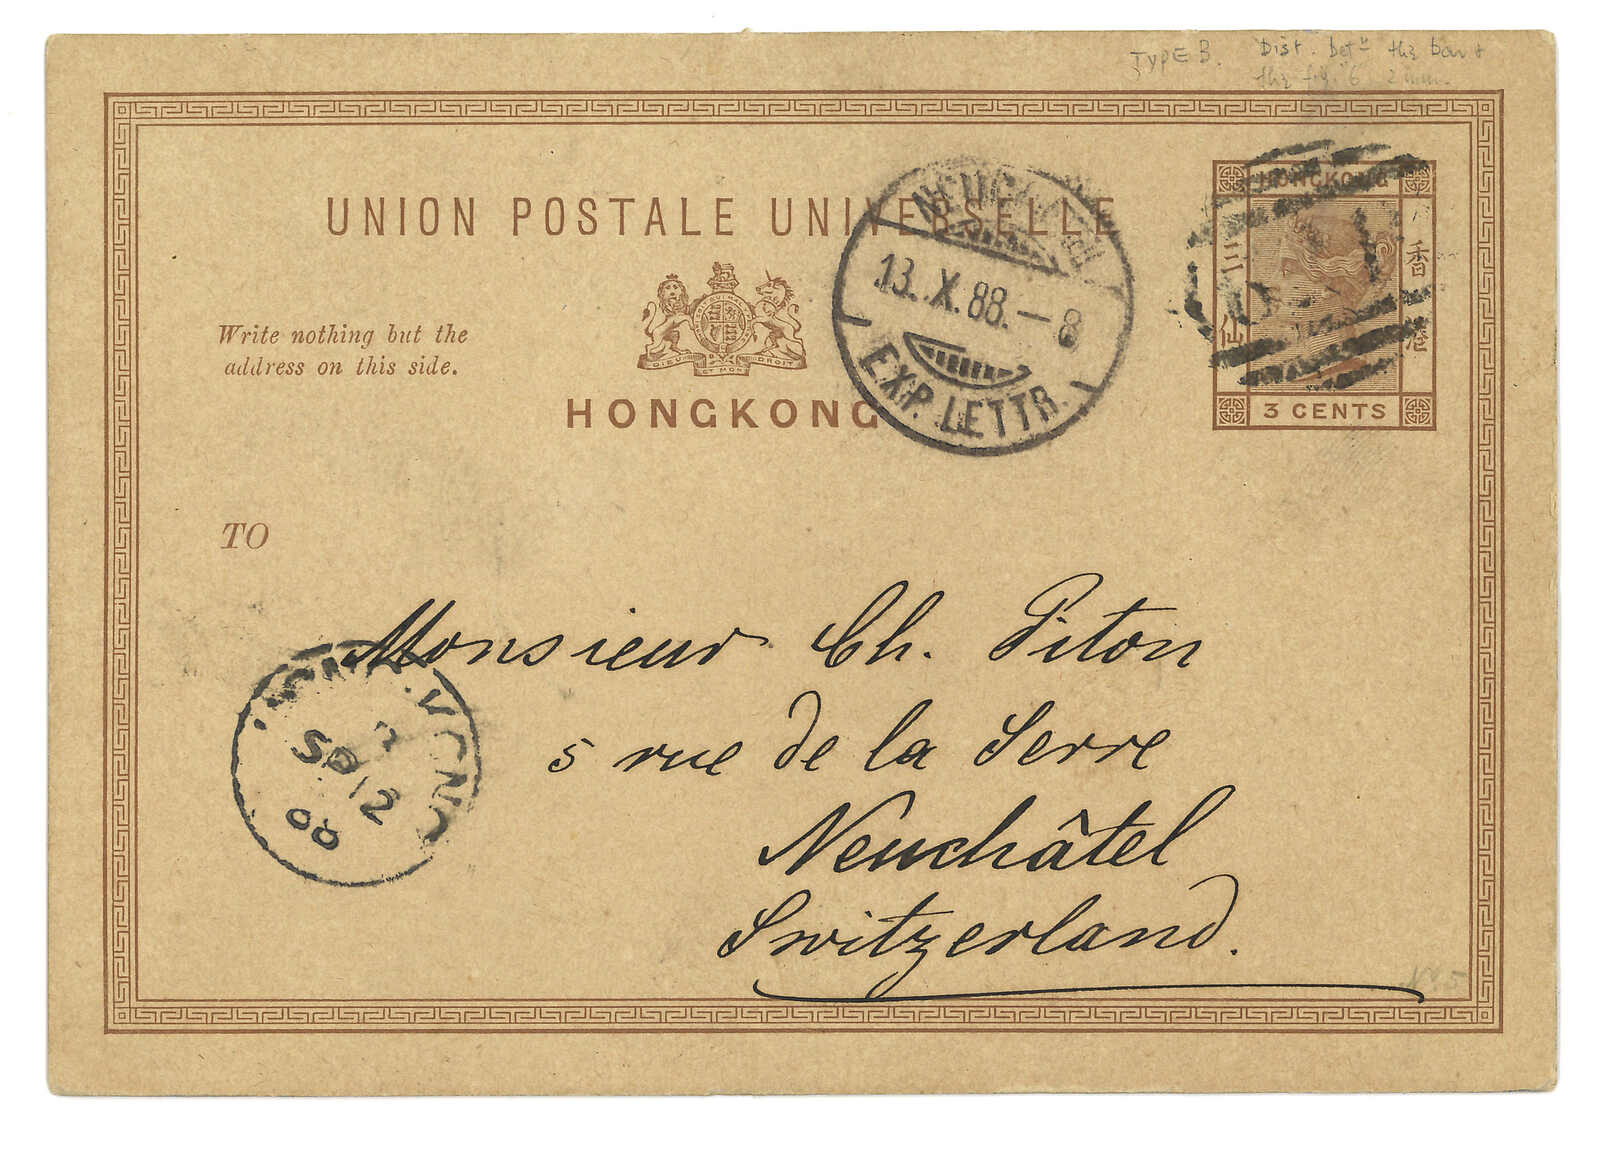 Type B. Dist. bet<sup>n</sup> the bar &
the fig. 6 2 mm.
UNION POSTALE UNIVERSELLE
HONGKONG
三仙
香港
3 CENTS
NEUCHATEL
13.X.88.–8
EXP. LETTR.
Write nothing but the
address on this side.
DIEU ET MON DROIT
HONGKONG
TO
Monsieur Ch. Piton
5 rue de la Serre
Neuchâtel
Switzerland.
HONG KONG
SP 12
88